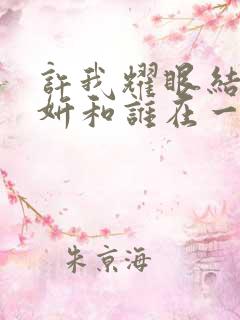 許我耀眼結
妍和誰在一
朱京海